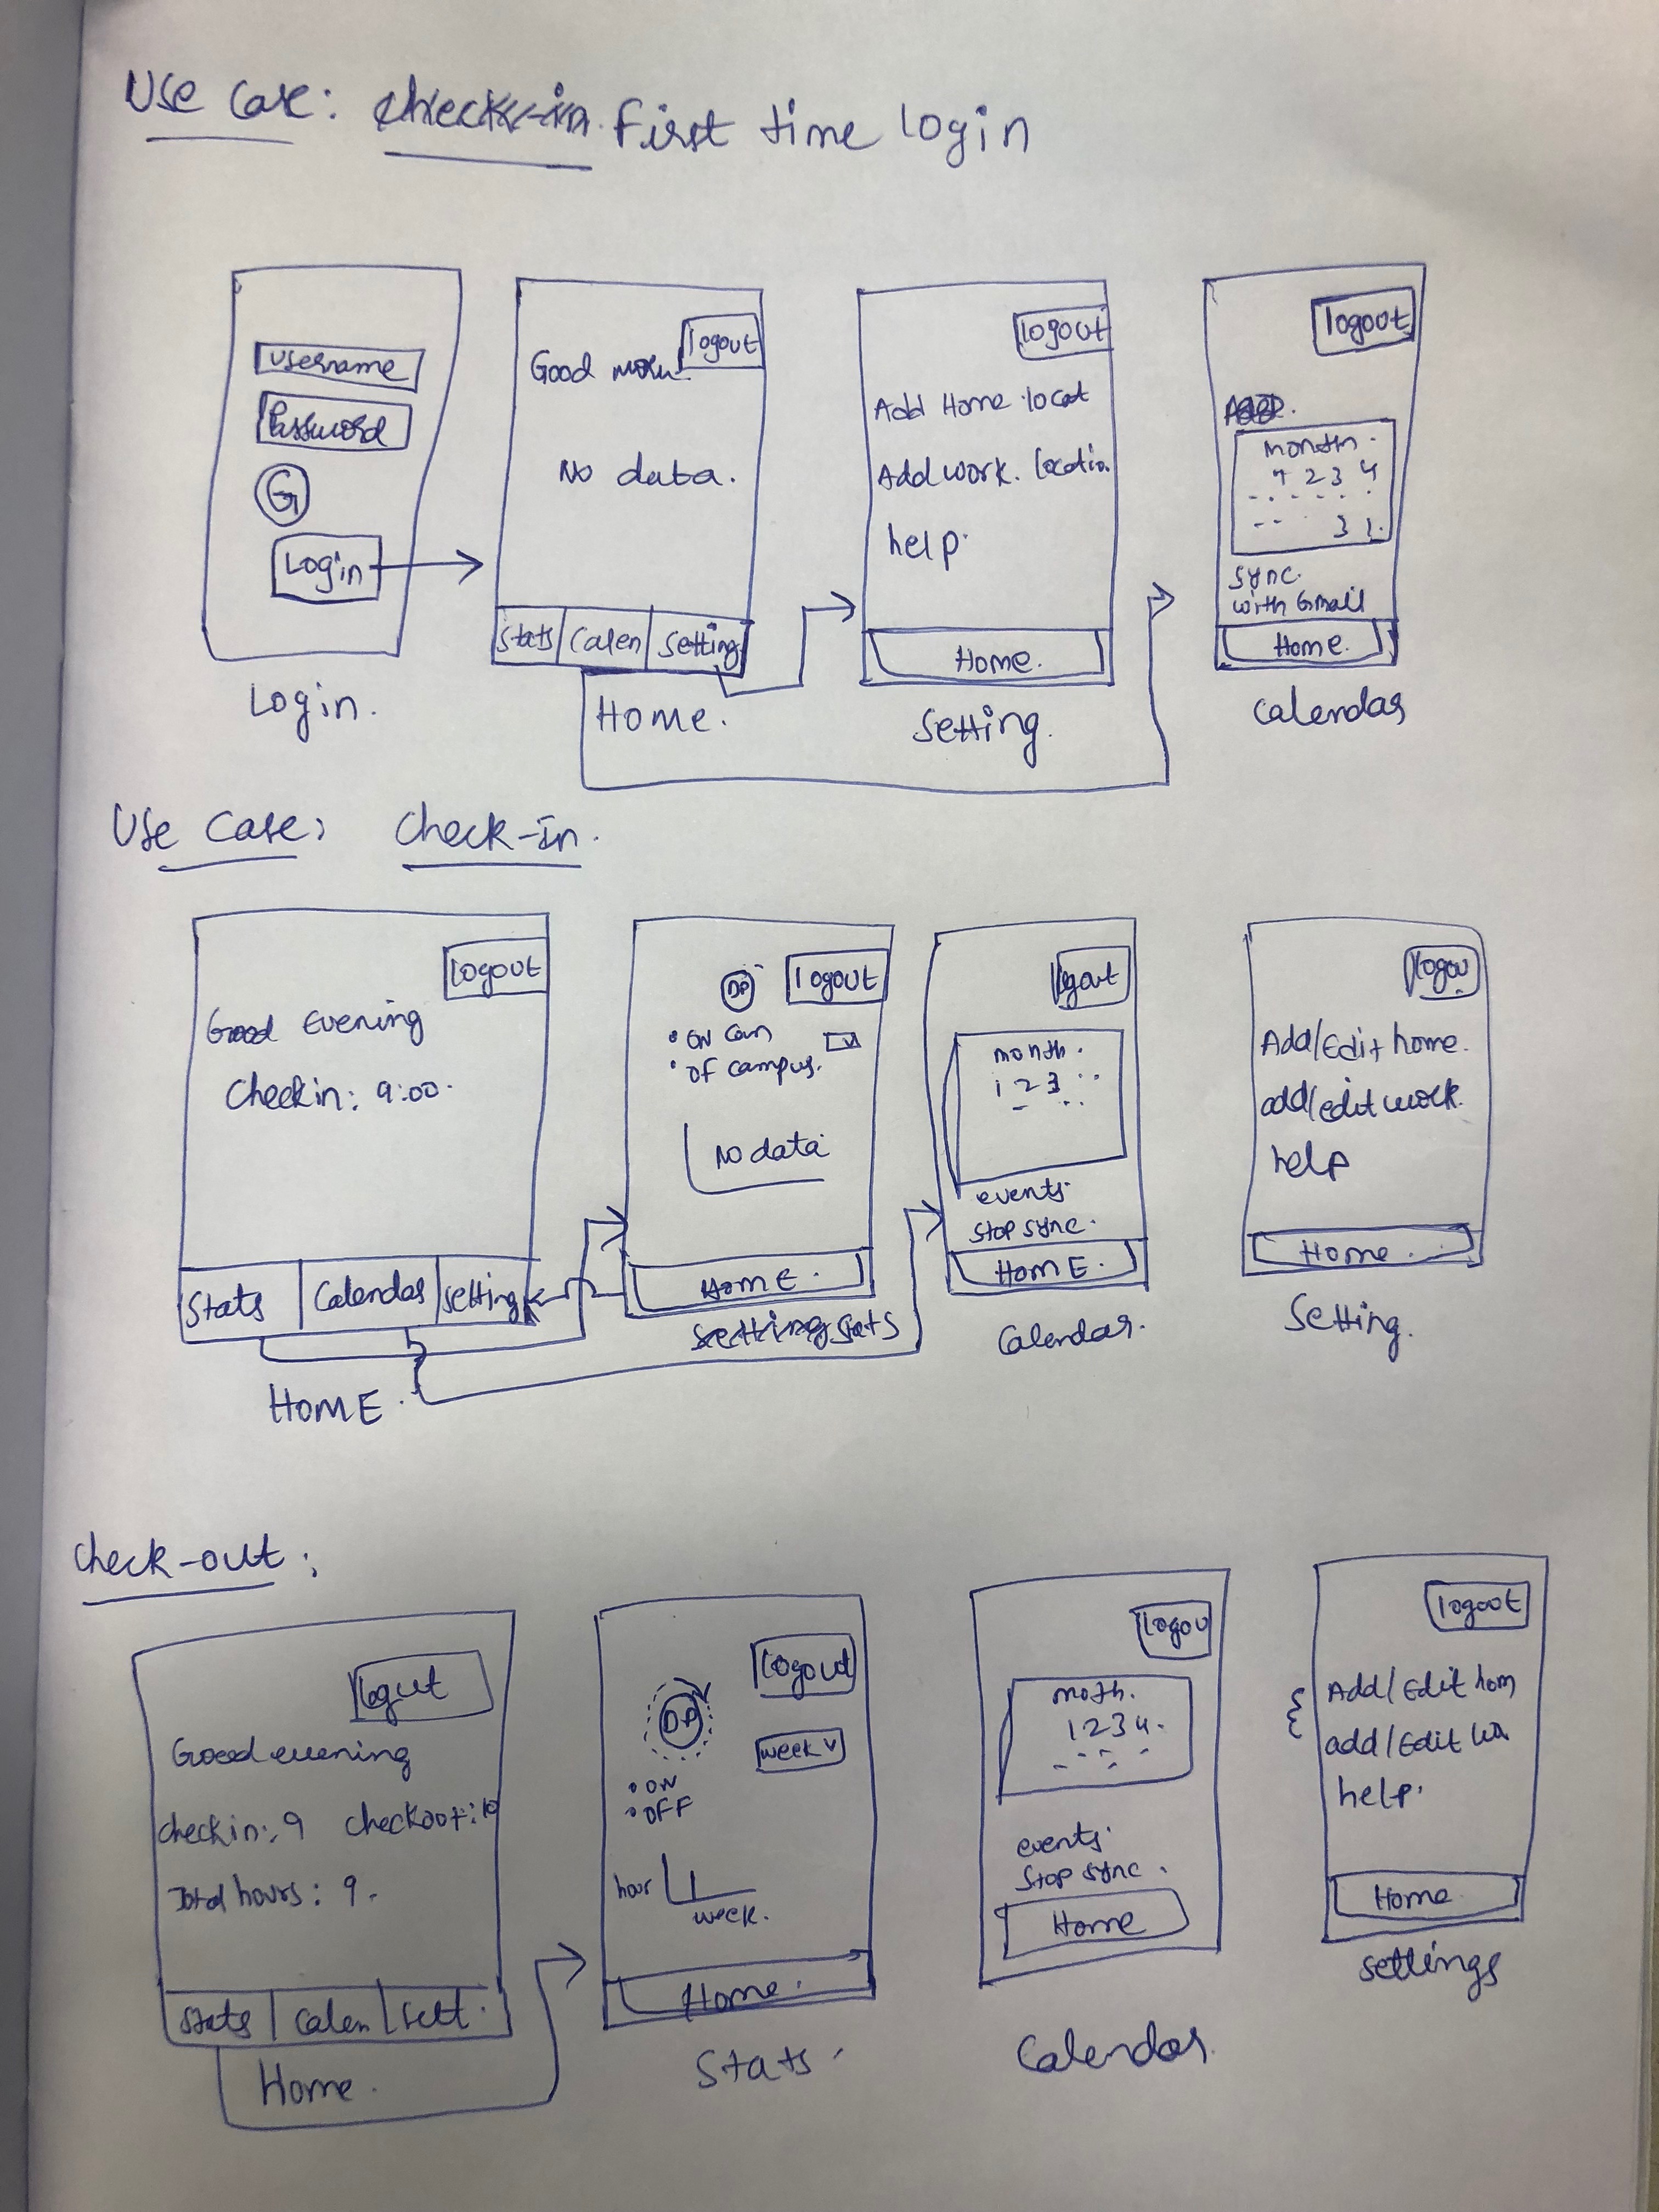 Use Case: check-in First time login
Username
Password
G
Login
Login.
logout
Good morn
No data.
Stats Calen Setting
Home.
logout
Add Home locat
Add work. locatio
help.
Home.
Setting.
logout
month.
1 2 3 4
3 1.
sync.
with Gmail
Home.
Calendar
Use Case: Check-in.
logout
Good Evening
Checkin: 9:00.
Stats Calendar Setting
HOME.
DP logout
• ON Cam
• Of campus.
No data
HOME.
Setting Stats
logout
month.
1 2 3
events.
stop sync.
HOME.
Calendar.
logou
Add/Edit home.
add/edit work.
help
Home.
Setting.
Check-out:
logut
Good evening
checkin: 9 checkout: 10
Total hours: 9.
Stats Calen Sett.
Home.
logout
DP
week v
• ON
• OFF
hour
week.
Home.
Stats.
logou
moth.
1 2 3 4.
events.
Stop sync.
Home
Calendar
logoot
Add/Edit hom
add/Edit wo
help.
Home
settings